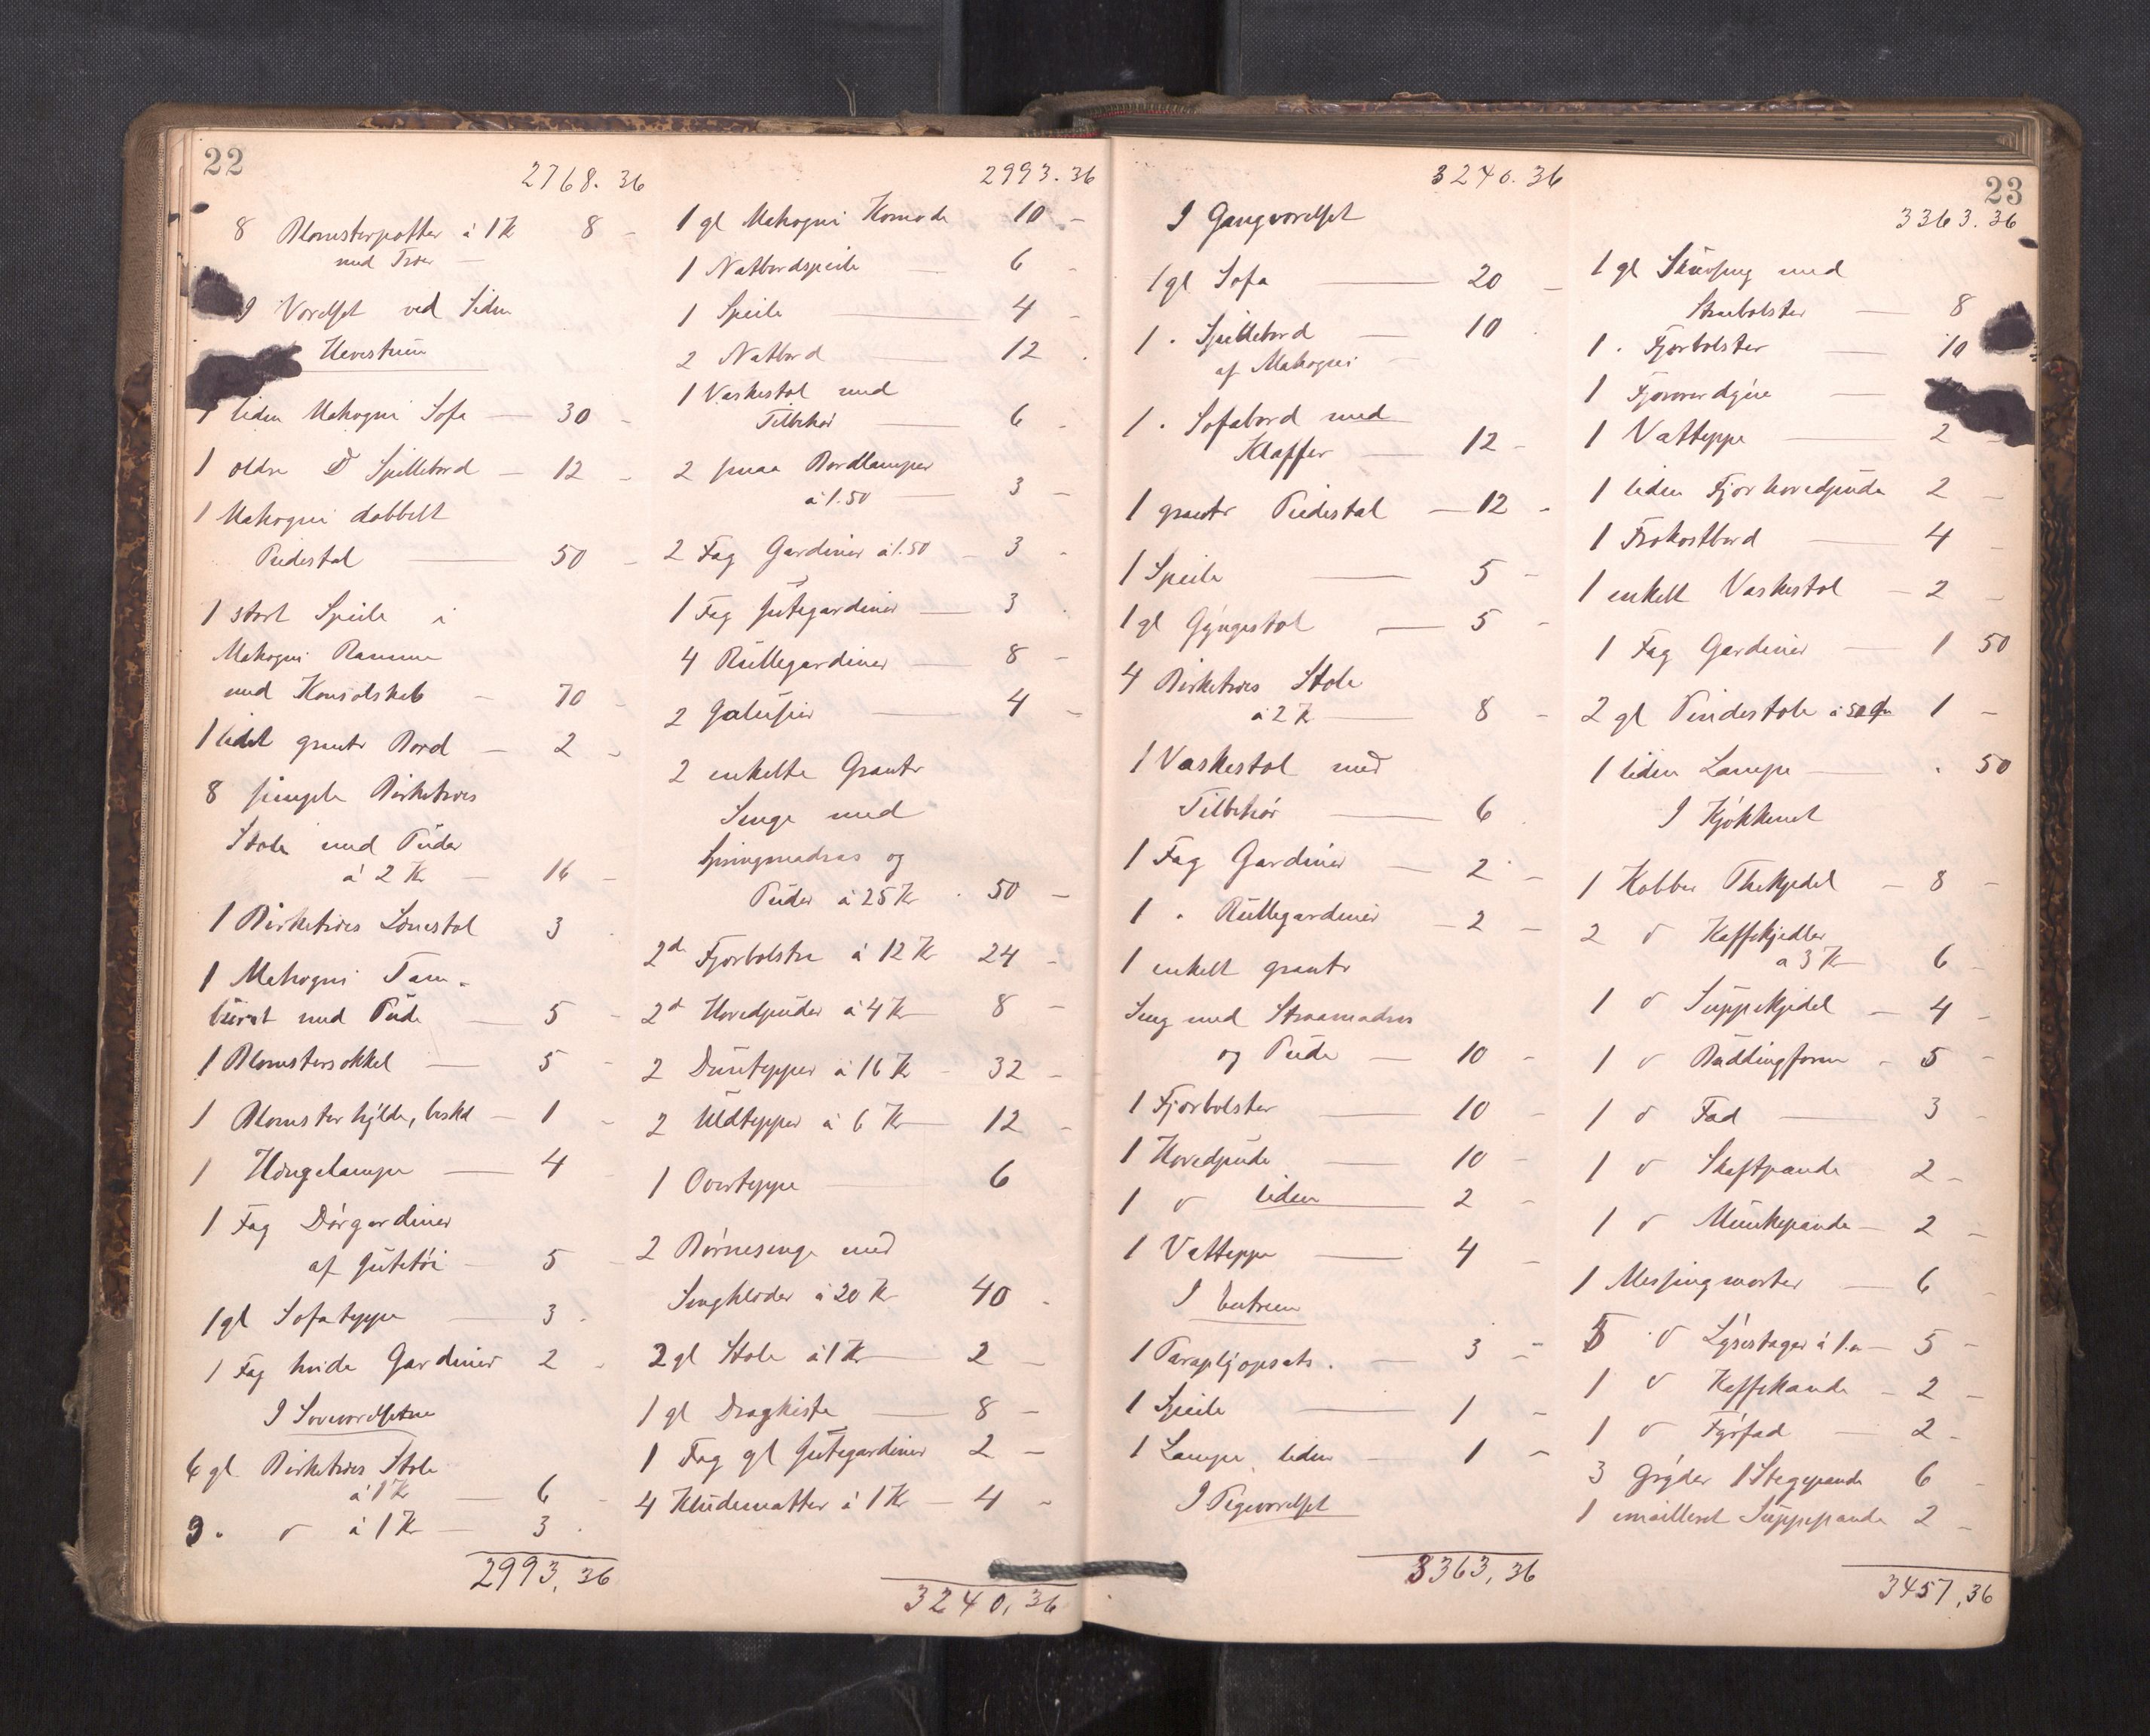 22
2768. 36
8 Blomsterpotter à 1 Kr 8 -
med Træer -
I Værelset ved Siden
1 liden Mahogni Sofa - 30 -
1 ældre D Spillebord - 12 -
1 Mahogni dobbelt
Piedestal - 50 -
1 stort Speile i
Mahogni Ramme
med Konsolskab - 70 -
1 lidet grantr Bord - 2 -
8 simple Birketræs
Stole med Puder
à 2 Kr - 16 -
1 Birketræs Lænestol 3
1 Mahogni Tam-
buret med Pude - 5 -
1 Blomstersokkel - 5 -
1 Blomsterhylde, beskd - 1 -
1 Hængelampe - 4 -
1 Fag Dørgardiner
af Jutetøi - 5 -
1 gl Sofateppe - 3 -
1 Fag hvide Gardiner 2 -
I Soveværelserne
6 gl. Birketræs Stole
à 1 Kr - 6 -
3 . d à 1 Kr - 3 .
2993, 36
2993. 36
1 gl Mahogni Komode 10 -
1 Natbordspeile - 6 -
1 Speile - 4 -
2 Natbord - 12 .
1 Vaskestol med
Tilbehør - 6 -
2 smaa Bordlamper
à 1.50 - 3 -
2 Fag Gardiner à 1.50 - 3 -
1 Fag Jutegardiner - 3 .
4 Rullegardiner - 8 -
2 Jalusier - 4 -
2 enkelte Grantr
Senge med
Springmadras og
Puder à 25 Kr . 50 -
2 d Fjærbolstre à 12 Kr 24 -
2 d Hovedpuder à 4 Kr 8 -
2 Duntepper à 16 Kr - 32 -
2 Uldtepper à 6 Kr - 12 -
1 Overteppe - 6
2 Børnesenge med
Sengklæder à 20 Kr 40 -
2 gl Stole à 1 Kr - 2 -
1 gl Dragkiste - 8 -
1 Fag gl Jutegardiner 2 -
4 Kludematter à 1 Kr - 4 -
3240, 36
3240. 36
I Gangværelset
1 gl Sofa - 20 -
1 . Spillebord - 10 .
af Mahogni -
1 . Sofabord med
Klaffer - 12 -
1 grantr Piedestal - 12 -
1 Speile - 5 -
1 gl Gyngestol - 5 -
4 Birketræs Stole
à 2 Kr - 8 -
1 Vaskestol med
Tilbehør - 6 .
1 Fag Gardiner - 2 -
1 . Rullegardiner - 2 -
1 enkelt grantr
Seng med Straamadras
og Pude - 10 -
1 Fjærbolster - 10 -
1 Hovedpude - 10 -
1 d liden - 2 -
1 Vatteppe - 4 -
I Entreen
1 Paraplyopsats . - 3 -
1 Speile - 1 -
1 Lampe liden - 1 -
I Pigeværelset
3363, 36
23
3363. 36
1 gl Skuvseng med
- 8
1 . Fjærbolster - 10
1 Fjær -
1 Vatteppe - 2 -
1 liden Fjærhovedpude 2 -
1 Frokostbord - 4 -
1 enkelt Vaskestol - 2 -
1 Fag Gardiner - 1 50
2 gl Pindestole à 50 Ør 1 -
1 liden Lampe - . 50
I Kjøkkenet
1 Kobber Thekjedel - 8 -
2 d Kaffekjedler
à 3 Kr 6 -
1 d Suppekjedel - 4 -
1 d Buddingform - 5 -
1 d Fad - 3 -
1 d Skaftpande 2 -
1 d Munkepande - 2 -
1 Messingmorter - 6 -
5 d Lysestager à 1.- - 5 -
1 d Kaffekande - 2 -
1 d Fyrfad - 2 -
3 Gryder 1 Stegepande 6 -
1 emailleret Suppepande 2 -
3457, 36